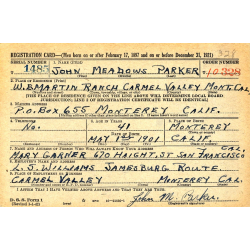 REGISTRATION CARD—(Men born on or after February 17, 1897 and on or before December 31, 1921)
SERIAL NUMBER 1. NAME (Print) ORDER NUMBER
1483 JOHN MEADOWS PARKER 10328
2. PLACE OF RESIDENCE (Print)
W.B. MARTIN RANCH CARMEL VALLEY MONT. CAL
[THE PLACE OF RESIDENCE GIVEN ON THE LINE ABOVE WILL DETERMINE LOCAL BOARD
JURISDICTION; LINE 2 OF REGISTRATION CERTIFICATE WILL BE IDENTICAL]
3. MAILING ADDRESS
P.O. BOX 655 MONTEREY CALIF.
4. TELEPHONE 5. AGE IN YEARS 6. PLACE OF BIRTH
NO. 40 MONTEREY
DATE OF BIRTH
MAY 1901 CAL
7. NAME AND ADDRESS OF PERSON WHO WILL ALWAYS KNOW YOUR ADDRESS CAL.
MARY GARNER 670 HAIGHT. ST SAN FRANCISCO
8. EMPLOYER'S NAME AND ADDRESS
L.S. WILLIAMS JAMESBURG ROUTE.
9. PLACE OF EMPLOYMENT OR BUSINESS
CARMEL VALLEY MONTEREY CAL
I AFFIRM THAT I HAVE VERIFIED ABOVE ANSWERS AND THAT THEY ARE TRUE.
D. S. S. Form 1
John M. Parker